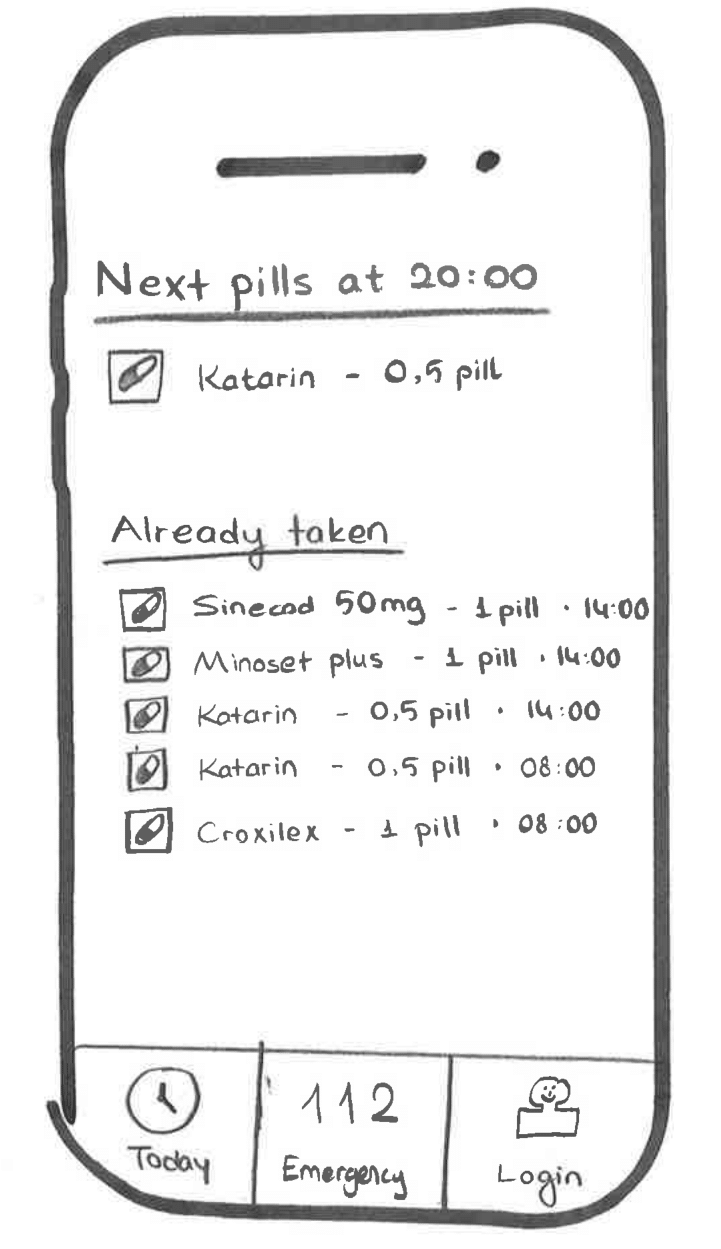 Next pills at 20:00
Katarin - 0,5 pill
Already taken
Sinecod 50mg - 1 pill · 14:00
Minoset plus - 1 pill · 14:00
Katarin - 0,5 pill · 14:00
Katarin - 0,5 pill · 08:00
Croxilex - 1 pill · 08:00
112
Today
Emergency
Login